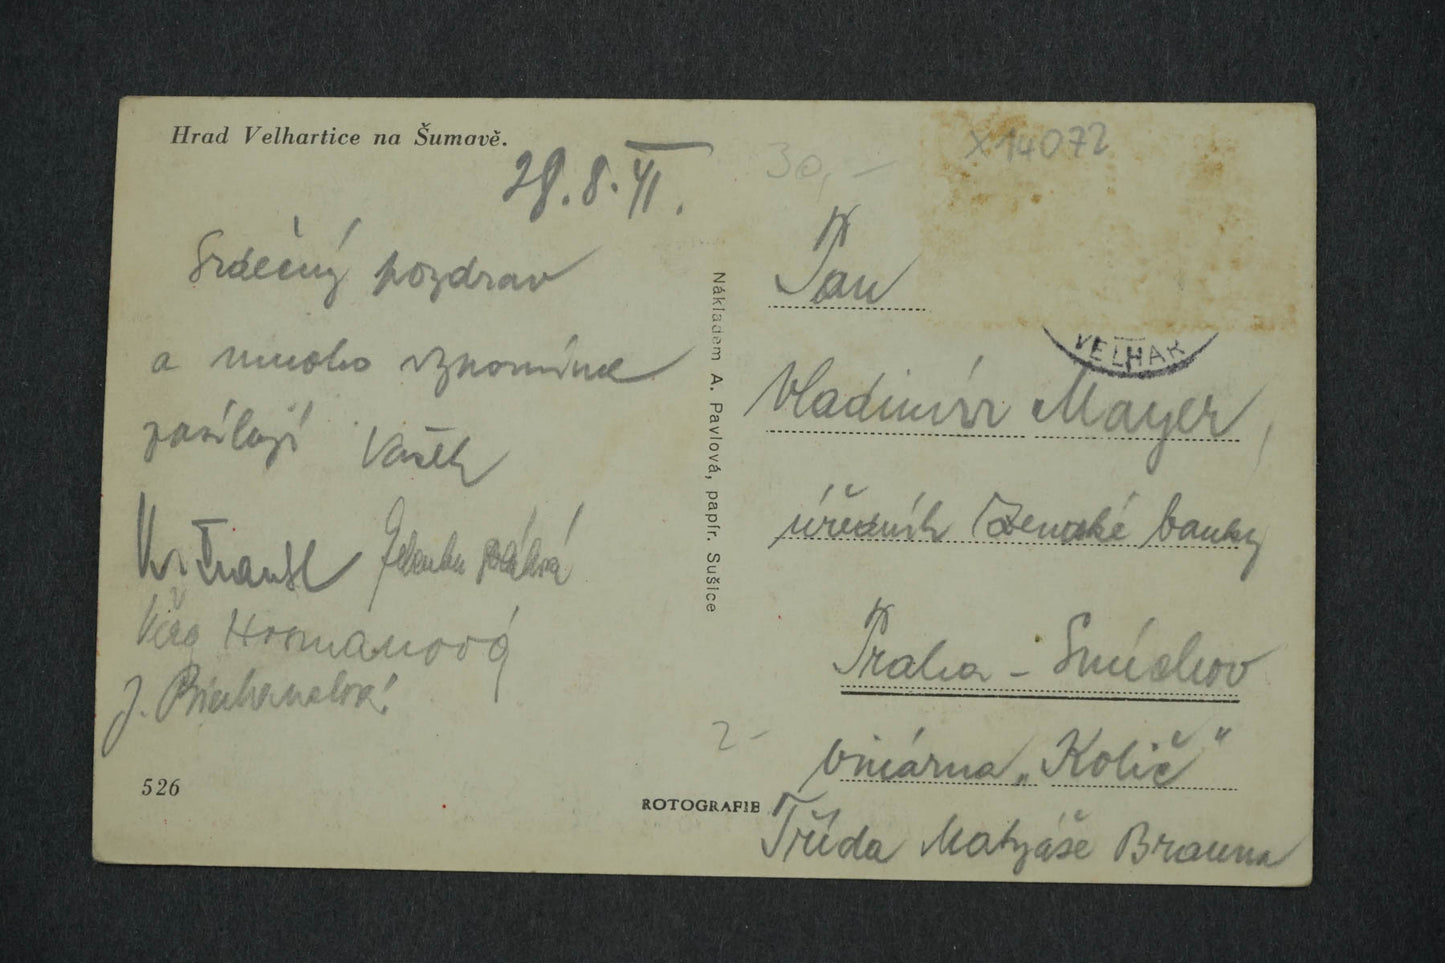 Hrad Velhartice na Šumavě.
28.8.41.
Srdečný pozdrav
a mnoho vzpomínek
zasílají Vašek
Věra Hosmanová
J.
526
Nákladem A. Pavlová, papír. Sušice
ROTOGRAFIE
30,-
X14072
VELHAR
Pan
Vladimír Mayer,
úředník Zemské banky
Praha - Smíchov
vinárna „Količ"
Třída Matyáše Brauna
2-